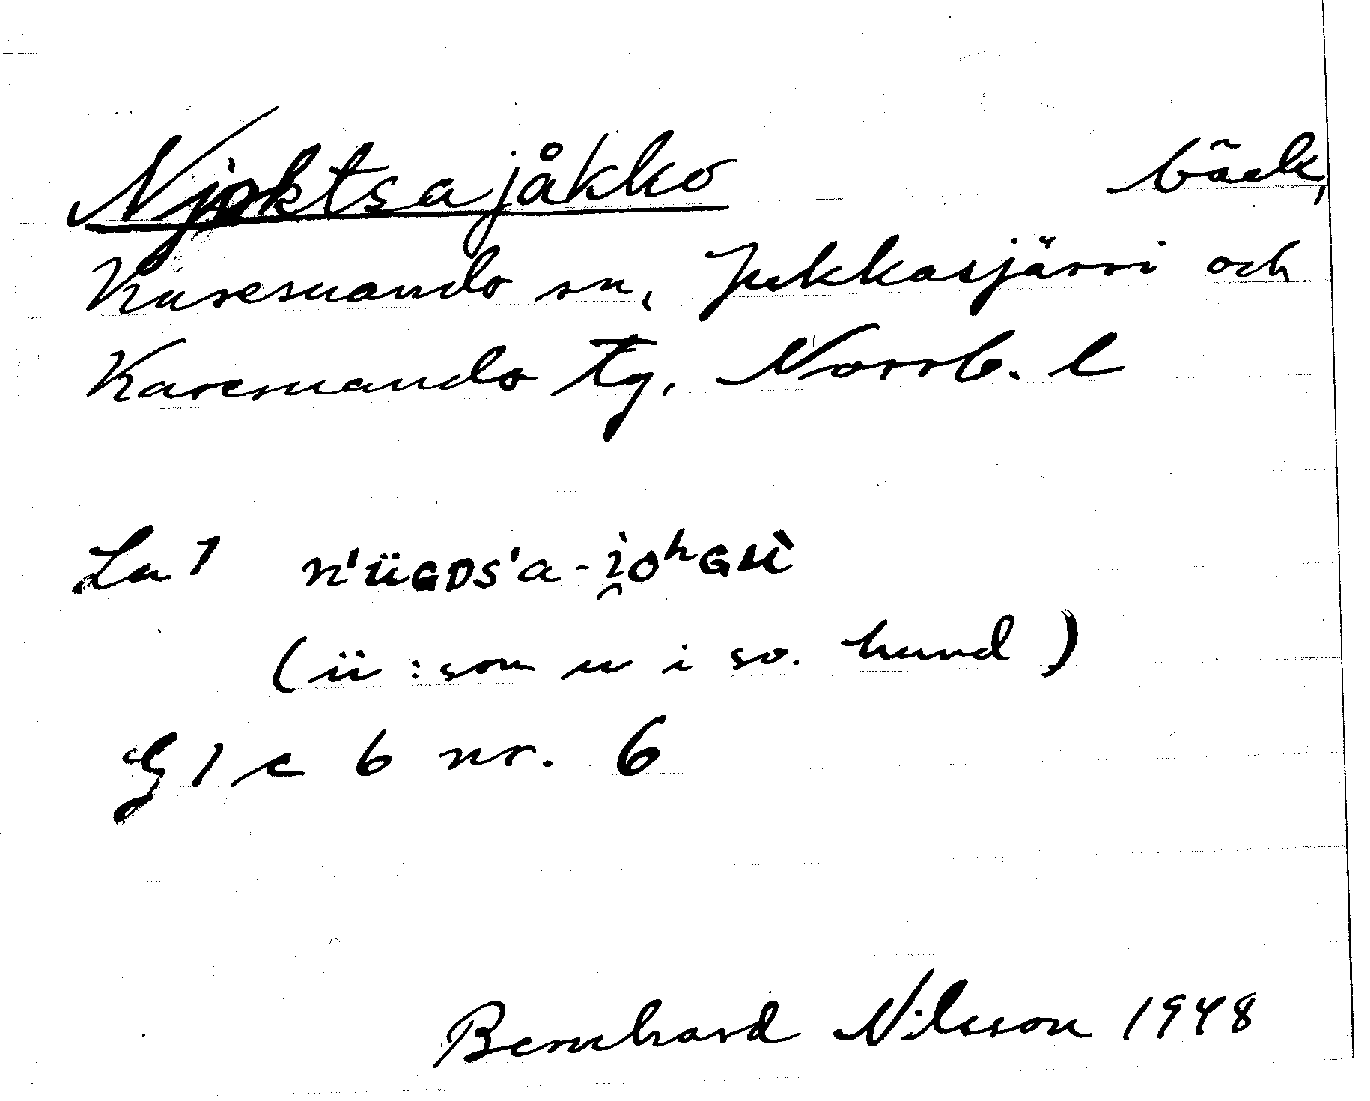 Njoktsajåkko bäck,
Karesuando sn, Jukkasjärvi och
Karesuando tg. Norrb. l
La 1 n'üGDS'a-i̯òʰGù
(ü : som u i sv. hund)
G 1 c 6 nr. 6
Bernhard Nilsson 1948